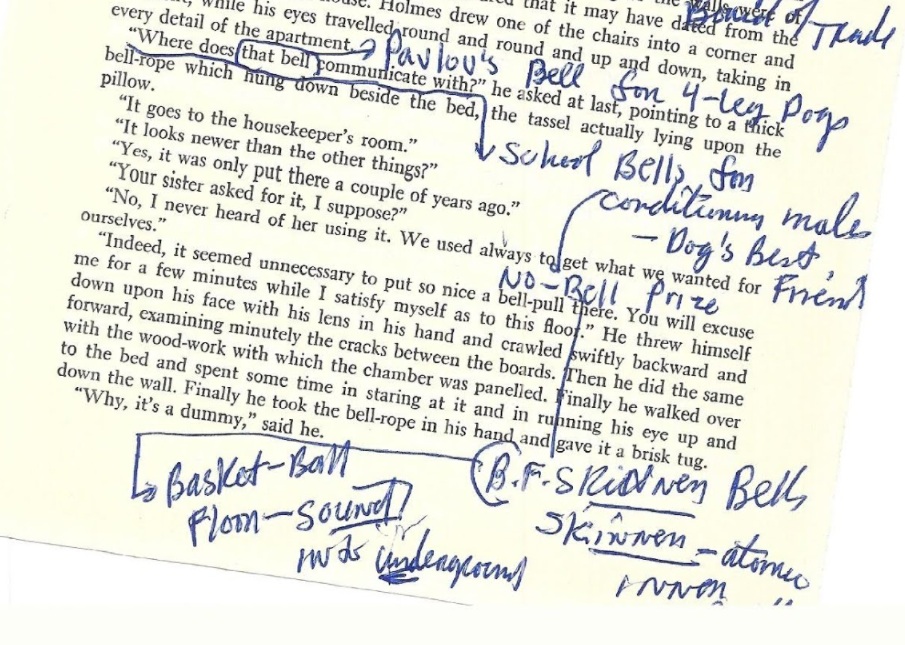 while his eyes travelled round and round and up and down, taking in
Holmes drew one of the chairs into a corner and
that it may have dated from the
walls were of
Board of
Trade
every detail of the apartment.
Pavlov's
Bell for 4-leg Dogs
"Where does that bell communicate with?" he asked at last, pointing to a thick
bell-rope which hung down beside the bed, the tassel actually lying upon the
pillow.
School Bells for
conditioning males
- Dog's Best
Friend
"It goes to the housekeeper's room."
"It looks newer than the other things?"
"Yes, it was only put there a couple of years ago."
"Your sister asked for it, I suppose?"
"No, I never heard of her using it. We used always to get what we wanted for
ourselves."
NO-Bell Prize
"Indeed, it seemed unnecessary to put so nice a bell-pull there. You will excuse
me for a few minutes while I satisfy myself as to this floor." He threw himself
down upon his face with his lens in his hand and crawled swiftly backward and
forward, examining minutely the cracks between the boards. Then he did the same
with the wood-work with which the chamber was panelled. Finally he walked over
to the bed and spent some time in staring at it and in running his eye up and
down the wall. Finally he took the bell-rope in his hand and gave it a brisk tug.
"Why, it's a dummy," said he.
Basket-Ball
Floor-Sound
underground
B.F. Skinner Bells
Skinner - atomic
inner